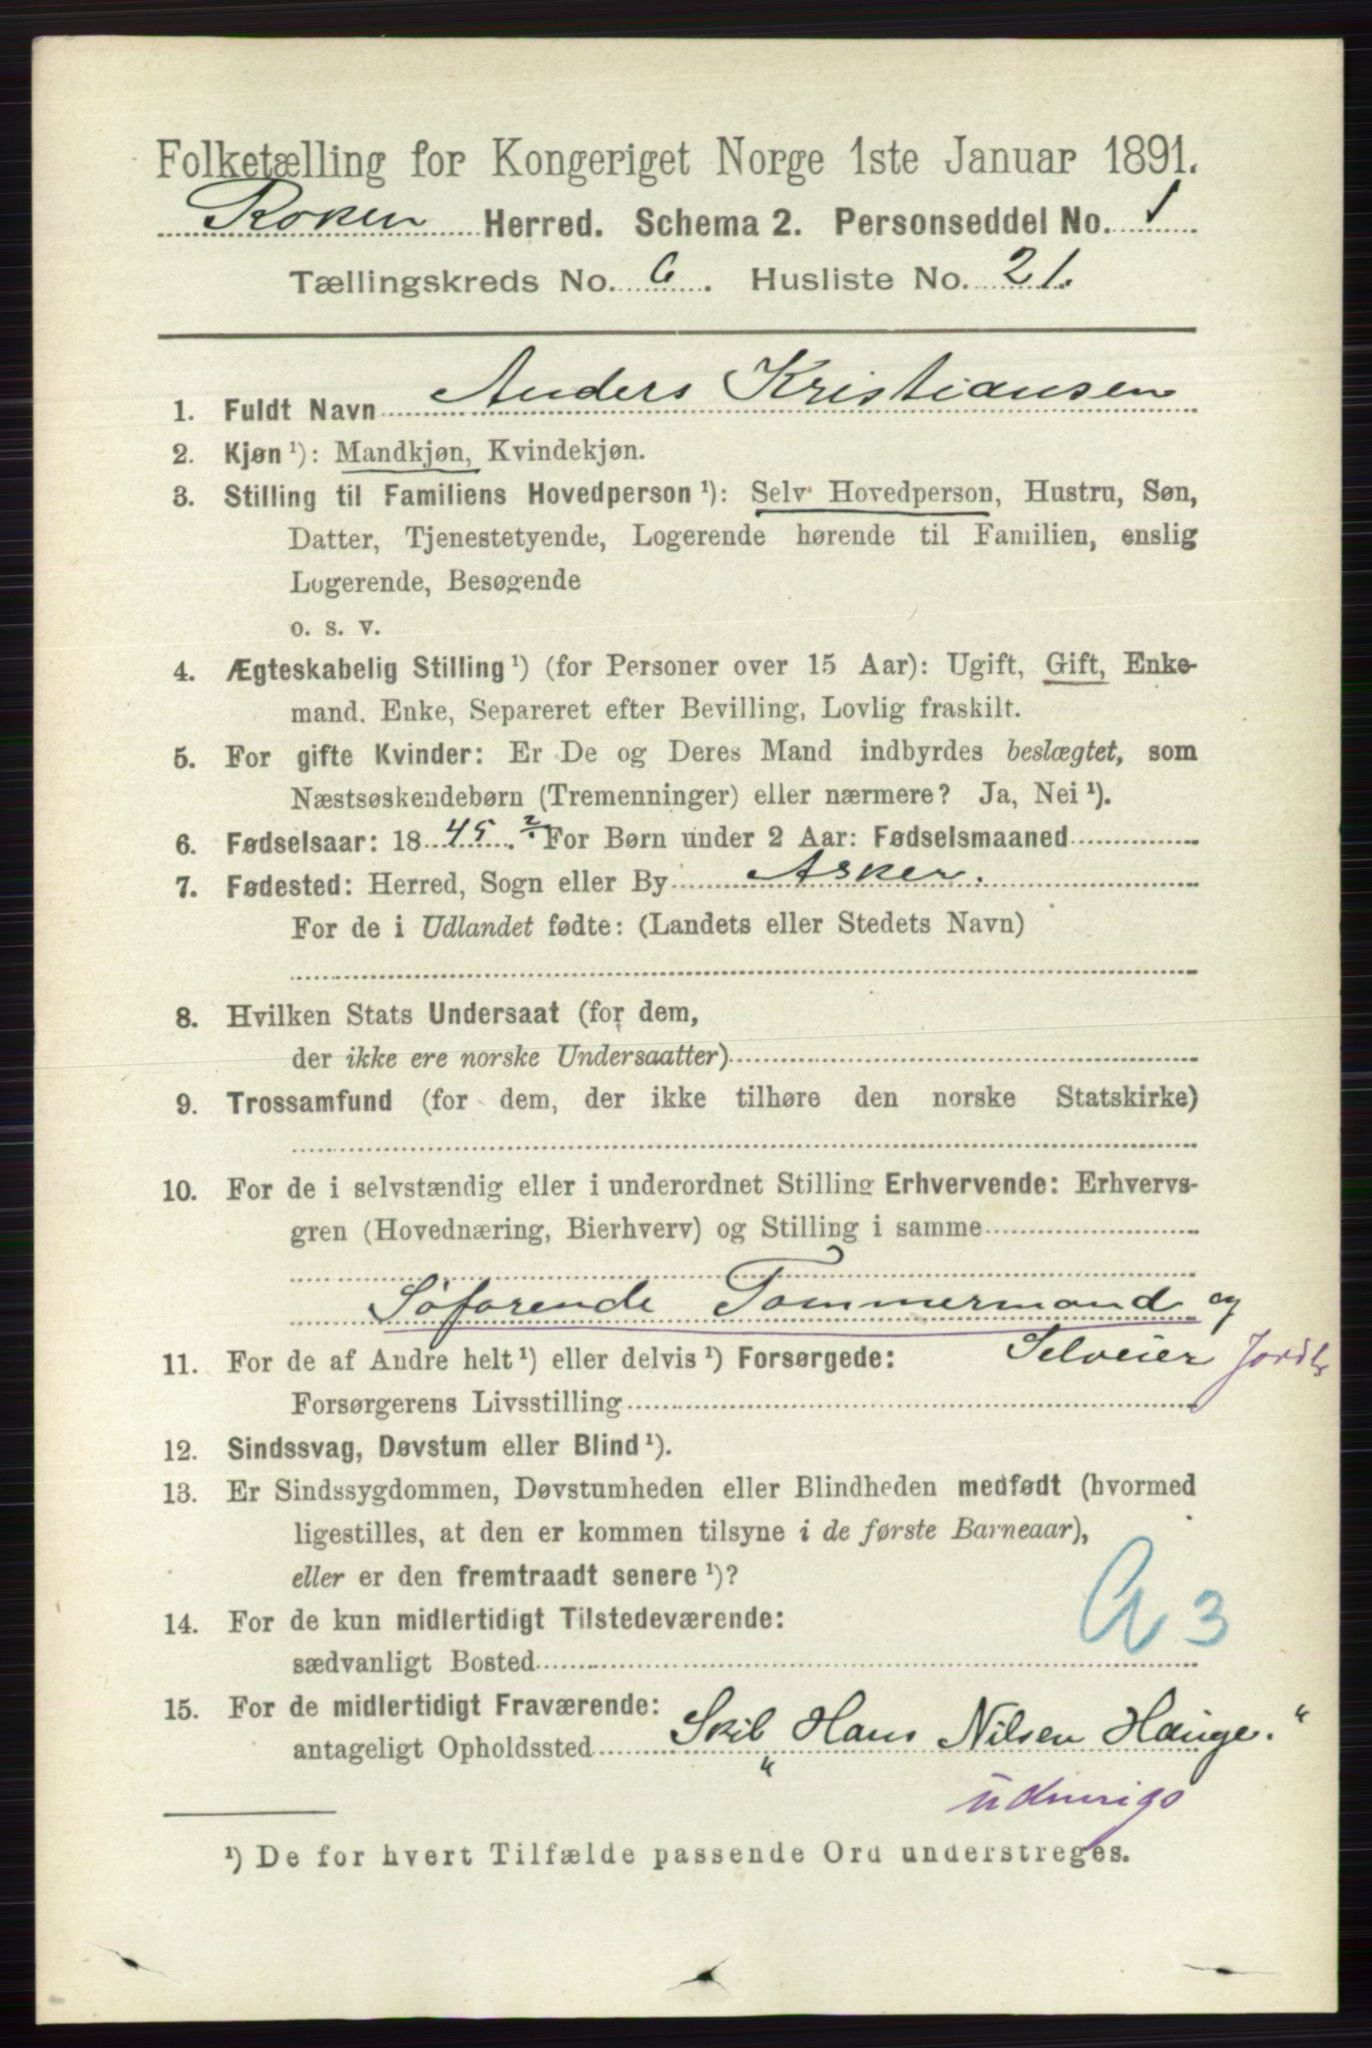 Folketælling for Kongeriget Norge 1ste Januar 1891.
Røken Herred. Schema 2. Personseddel No. 1
Tællingskreds No. 6. Husliste No. 21.
1. Fuldt Navn Anders Kristiansen
2. Kjøn ¹): Mandkjøn, Kvindekjøn.
3. Stilling til Familiens Hovedperson ¹): Selv Hovedperson, Hustru, Søn,
Datter, Tjenestetyende, Logerende hørende til Familien, enslig
Logerende, Besøgende
o. s. v.
4. Ægteskabelig Stilling ¹) (for Personer over 15 Aar): Ugift, Gift, Enke-
mand, Enke, Separeret efter Bevilling, Lovlig fraskilt.
5. For gifte Kvinder: Er De og Deres Mand indbyrdes beslægtet, som
Næstsøskendebørn (Tremenninger) eller nærmere? Ja, Nei ¹).
6. Fødselsaar: 1845. For Børn under 2 Aar: Fødselsmaaned
7. Fødested: Herred, Sogn eller By Asker.
For de i Udlandet fødte: (Landets eller Stedets Navn)
8. Hvilken Stats Undersaat (for dem,
der ikke ere norske Undersaatter)
9. Trossamfund (for dem, der ikke tilhøre den norske Statskirke)
10. For de i selvstændig eller i underordnet Stilling Erhvervende: Erhvervs-
gren (Hovednæring, Bierhverv) og Stilling i samme
Søfarende Tømmermand og
Selveier Jordb
11. For de af Andre helt ¹) eller delvis ¹) Forsørgede:
Forsørgerens Livsstilling
12. Sindssvag, Døvstum eller Blind ¹).
13. Er Sindssygdommen, Døvstumheden eller Blindheden medfødt (hvormed
ligestilles, at den er kommen tilsyne i de første Barneaar),
eller er den fremtraadt senere ¹)?
14. For de kun midlertidigt Tilstedeværende:
sædvanligt Bosted
G 3
15. For de midlertidigt Fraværende:
antageligt Opholdssted Skib „Hans Nilsen Hauge."
udenrigs
¹) De for hvert Tilfælde passende Ord understreges.